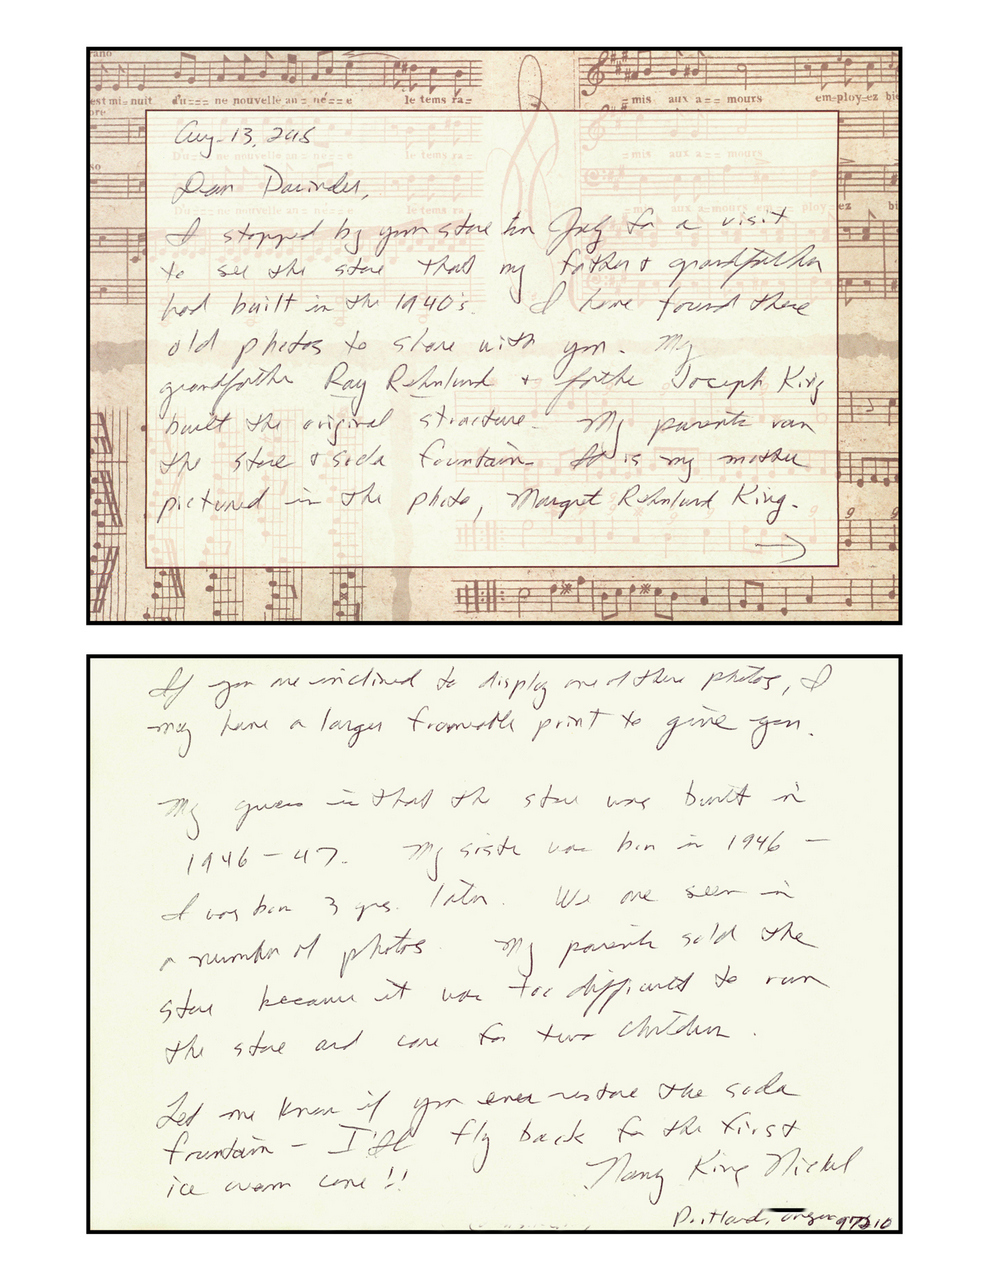 est mi=nuit du=== ne nouvelle an= né==e le tems ra= =mis aux a== mours em=ploy=ez bi
Aug. 13, 2015
Dear Davinder,
I stopped by your store in July for a visit
to see the store that my father & grandfather
had built in the 1940's. I have found these
old photos to share with you. My
grandfather Ray Rehnlund & father Joseph King
built the original structure. My parents ran
the store & soda fountain. It is my mother
pictured in the photo, Margret Rehnlund King.
If you are inclined to display one of these photos, I
may have a larger frameable print to give you.
My guess is that the store was built in
1946-47. My sister was born in 1946 –
I was born 3 yrs. later. We are seen in
a number of photos. My parents sold the
store because it was too difficult to run
the store and care for two children.
Let me know if you ever restore the soda
fountain – I'll fly back for the first
ice cream cone!!
Nancy King Nickel
Portland, Oregon 97210